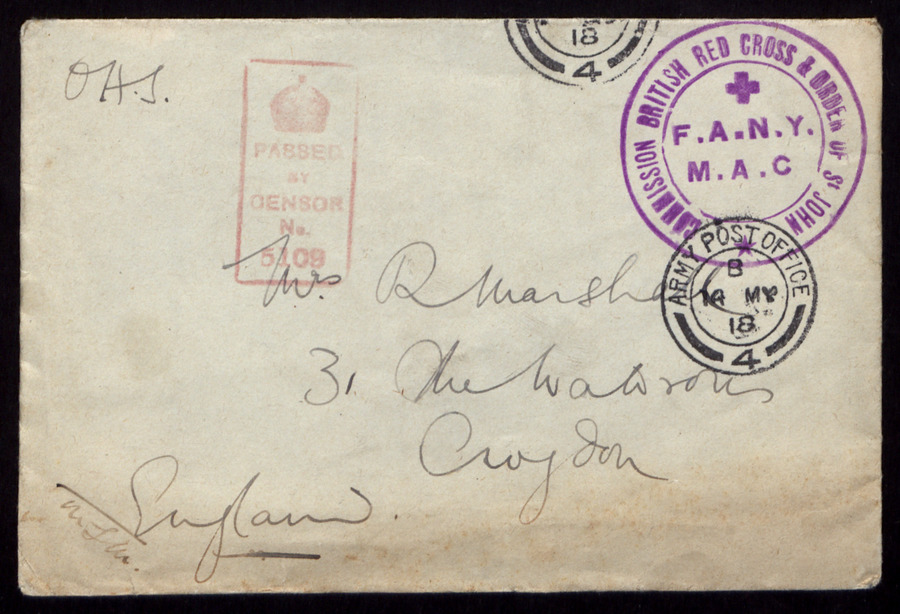 18
4
OHS.
COMMISSION BRITISH RED CROSS & ORDER OF ST JOHN
F.A.N.Y.
M.A.C
PASSED
BY
CENSOR
No.
5109
ARMY POST OFFICE
B
14 MY
18
4
Mrs R Marshall
31 The Waldrons
Croydon
England.